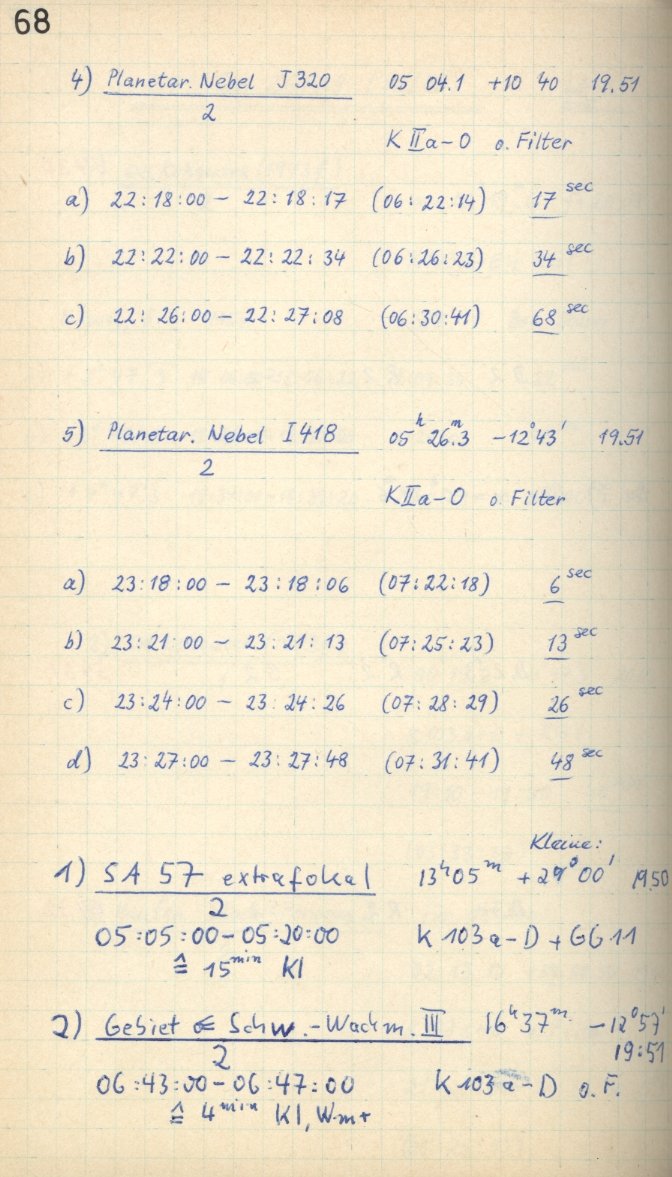 68
4) Planetar. Nebel J 320 05 04.1 +10 40 19.51
2
K IIa-O o. Filter
a) 22:18:00 - 22:18:17 (06:22:14) 17 sec
b) 22:22:00 - 22:22:34 (06:26:23) 34 sec
c) 22:26:00 - 22:27:08 (06:30:41) 68 sec
5) Planetar. Nebel I 418 05h 26.m3 -12°43' 19.51
2
K IIa-O o. Filter
a) 23:18:00 - 23:18:06 (07:22:18) 6 sec
b) 23:21:00 - 23:21:13 (07:25:23) 13 sec
c) 23:24:00 - 23:24:26 (07:28:29) 26 sec
d) 23:27:00 - 23:27:48 (07:31:41) 48 sec
Kleine:
1) SA 57 extrafokal 13h05m +29°00' 19.50
2
05:05:00-05:20:00 K 103a-D + GG 11
≙ 15min Kl
2) Gebiet Schw.-Wachm. III 16h37m -12°57'
2 19:51
06:43:00-06:47:00 K 103a-D o. F.
≙ 4min Kl, Wm+